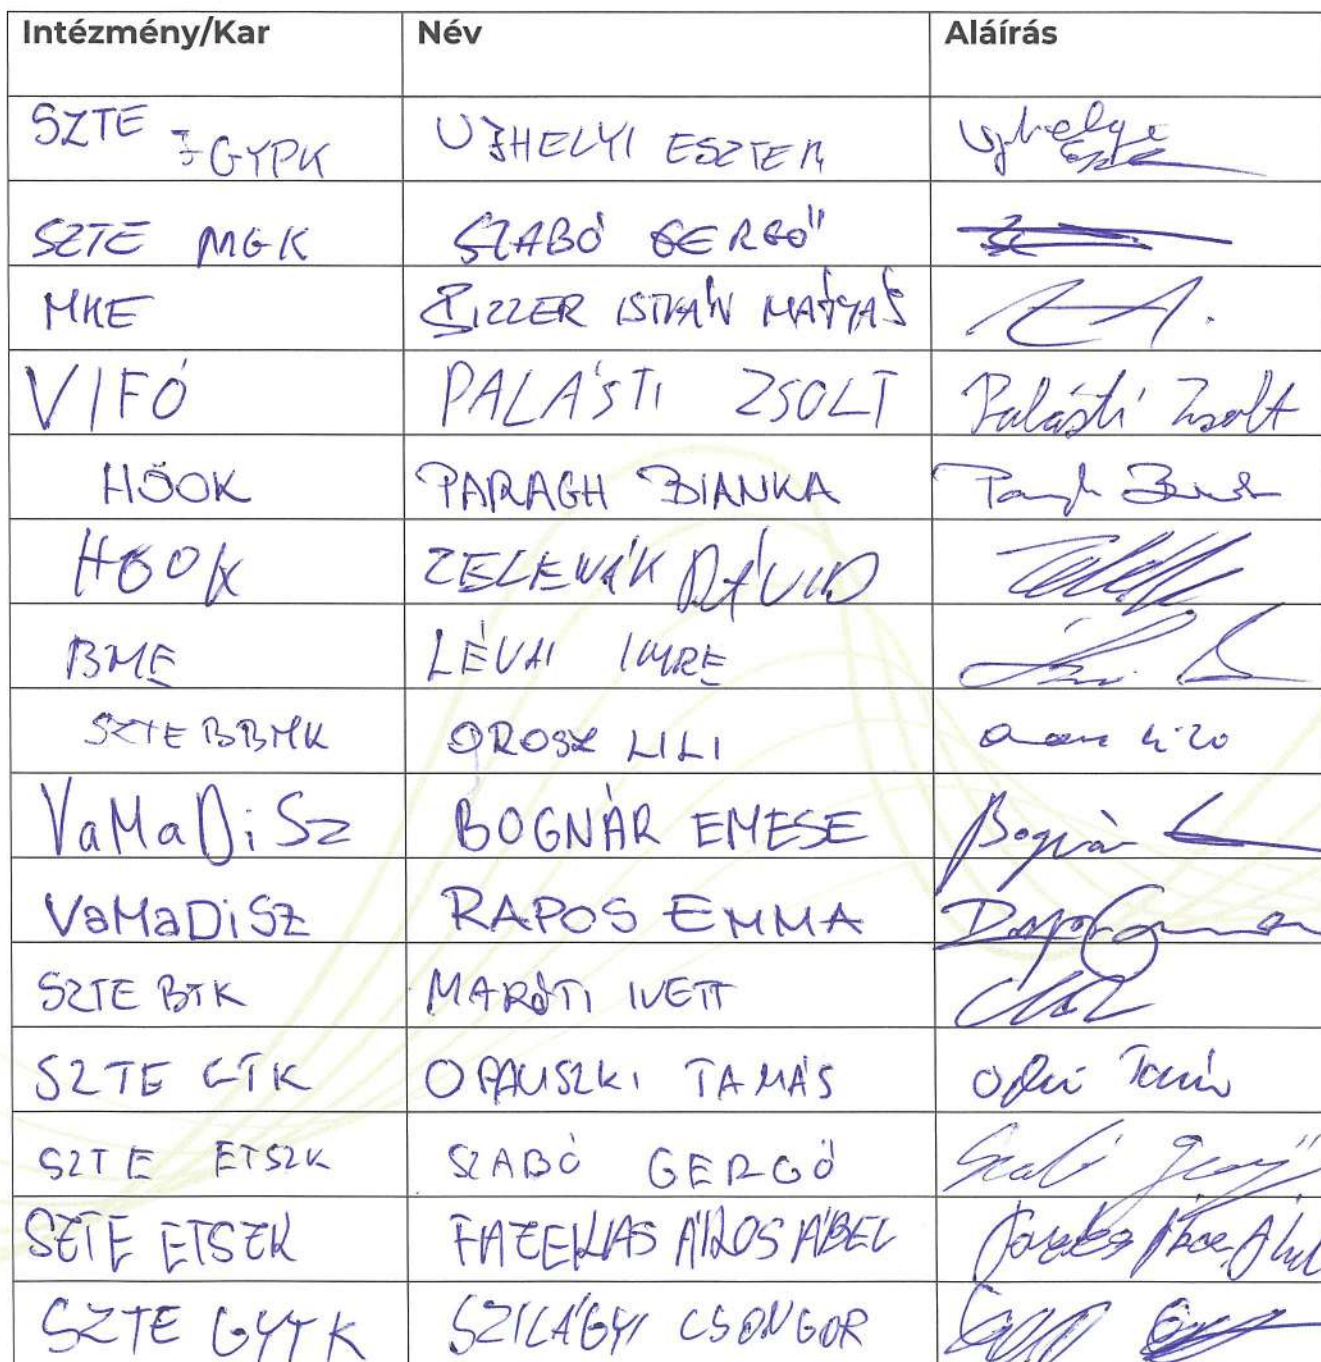 Intézmény/Kar Név Aláírás
SZTE JGYPK UJHELYI ESZTER Ujhelyi Eszter
SZTE MGK SZABÓ GERGŐ
MKE ISTVÁN MÁTYÁS
VIFÓ PALÁSTI ZSOLT Palásti Zsolt
HÖOK PARAGH BIANKA
HÖOK ZELENÁK DÁVID
BME LÉVAI IMRE
SZTE BBMK OROSZ LILI
VaMaDiSz BOGNÁR EMESE Bognár
VaMaDiSz RAPOS EMMA
SZTE BTK MARÓTI IVETT
SZTE GTK OPAUSZKI TAMÁS
SZTE ETSZK SZABÓ GERGŐ Szabó Gergő
SZTE ETSZK FAZEKAS ÁBEL
SZTE GYTK SZILÁGYI CSONGOR